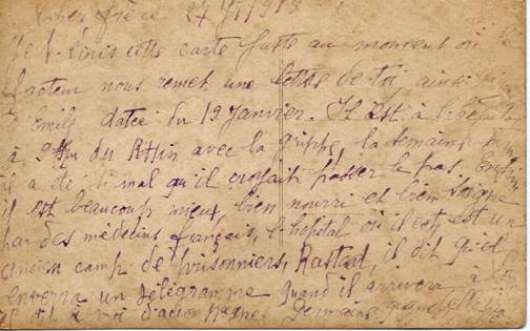 Cher frère 27/1/1918
Je t'écris cette carte juste au moment où le
facteur nous remet une lettre de toi, ainsi
Emile datée du 19 Janvier. Il est à l'hôpital
à 9 Km du Rhin avec la grippe, la semaine
il a été si mal qu'il croyait passer le pas.
il est beaucoup mieux, bien nourri et bien soigné
par des médecins français, l'hopital où il est, est un
ancien camp de prisonniers, Rastadt, il dit qu'il
enverra un télégramme quand il arrivera à
à toi d'avoir Germains